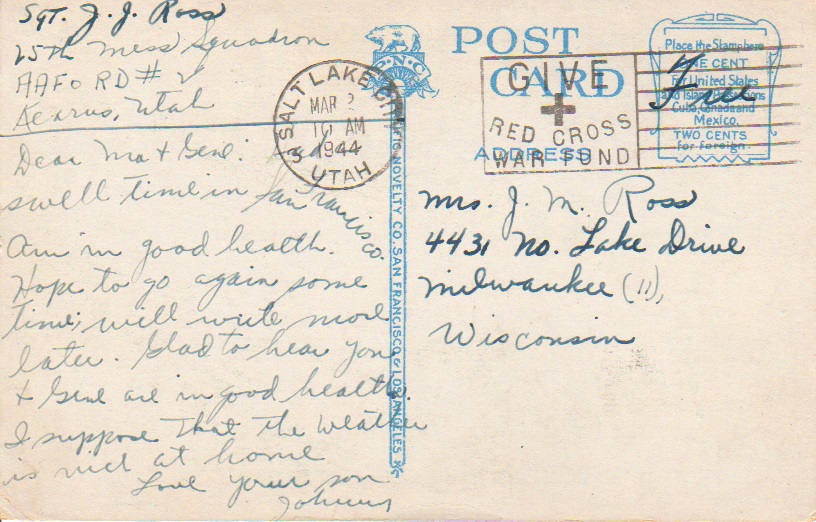 Sgt. J. J. Ross
25th Mess Squadron
AAFORD #2
Kearns, Utah
Dear Ma & Gene: Had a
swell time in San Francisco.
Am in good health.
Hope to go again some
time; will write more
later. Glad to hear you
& Gene are in good health.
I suppose that the weather
is nice at home
Love your son
Johnny
PNC
SALT LAKE CITY
MAR 2
10 AM
1944
3 UTAH
NOVELTY CO. SAN FRANCISCO & LOS ANGELES
POST
CARD
ADDRESS
GIVE
RED CROSS
WAR FUND
Place the Stamp here
ONE CENT
For United States
and Island Possessions
Cuba, Canada and
Mexico.
TWO CENTS
for foreign.
Free
Mrs. J. M. Ross
4431 No. Lake Drive
Milwaukee (11),
Wisconsin